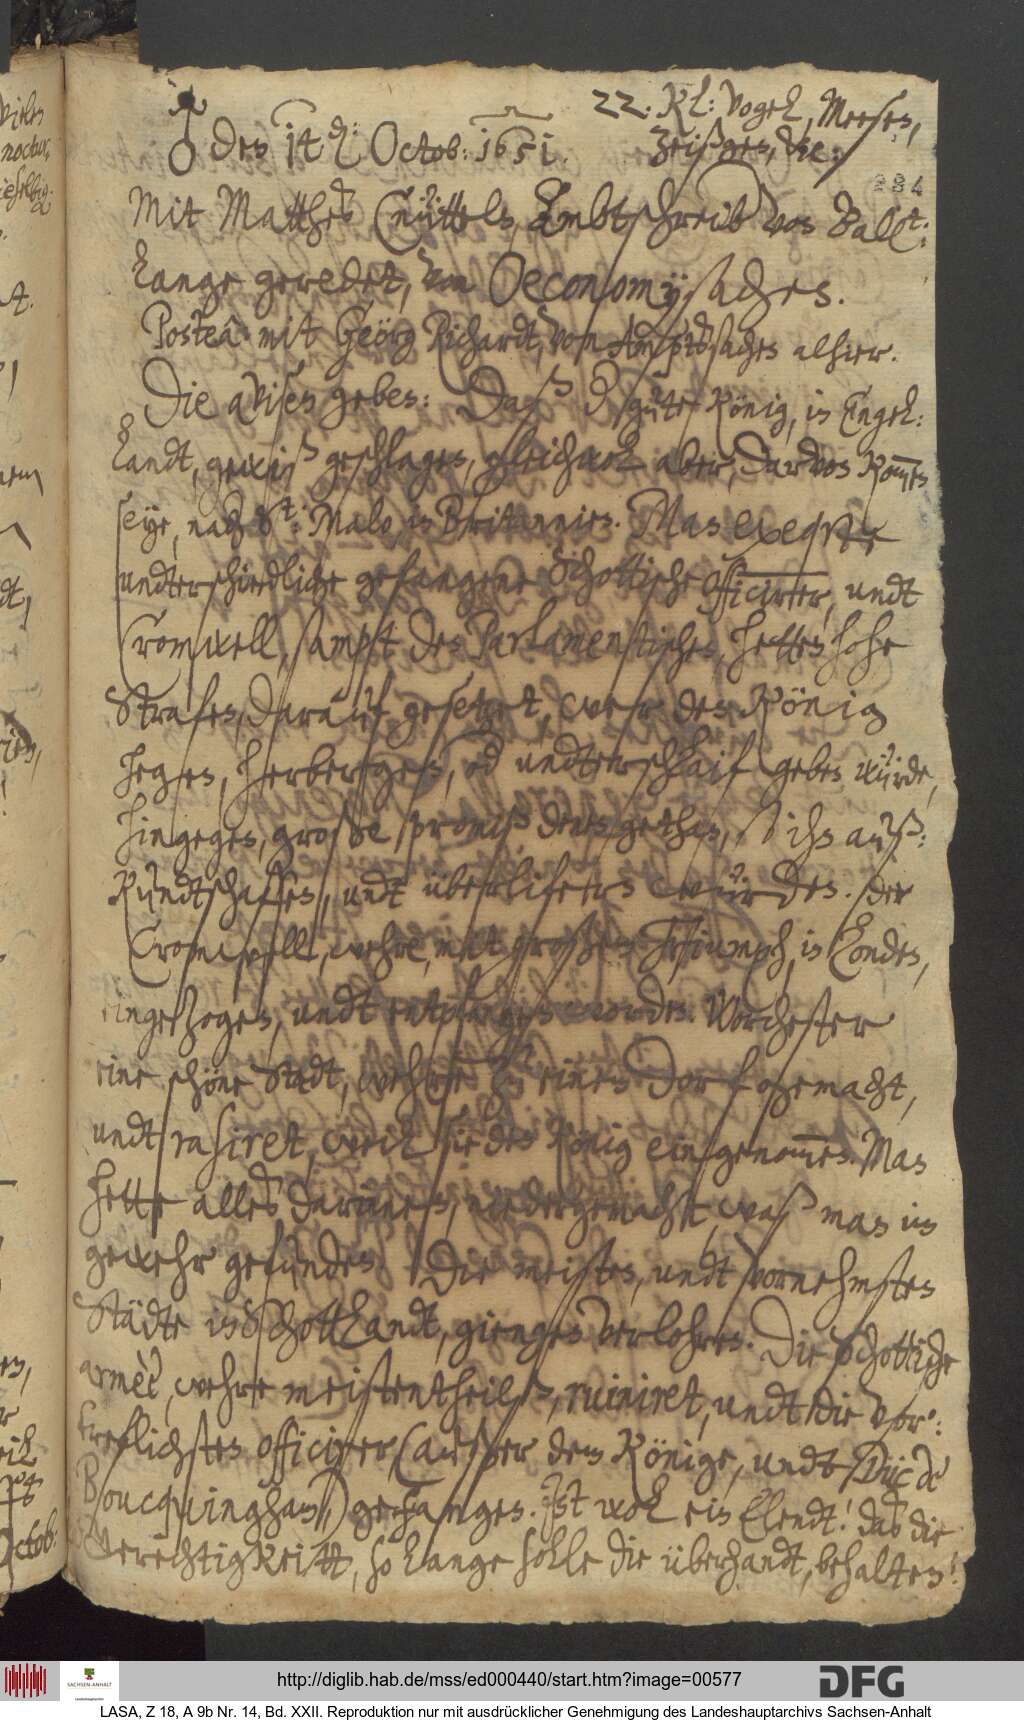 22. Kl: Vogel, Meesen,
Zeisigen, etc:
♂ den 14 d: Octob: 1651.
284
Mit Matthes Ambtschreib von Ball:
lange geredet, von Oeconomysachen.
Posteà mit Geörg Richardt, von Amptssachen alhier.
Die avisen geben: Daß d gute König, in Engel:
landt, gewiß geschlagen, gleichwol aber, darvon kom̅en
seye, nach St: Malo, in Britannien. Man exequire
undterschiedliche gefangene Schottische officirer, undt
Cromwell, sampt den Parlamentischen, hetten hohe
Strafen, darauf gesetzet, wer den König
hegen, herbergen, od undterschlaif geben würde,
hingegen, große promiß denen gethan, so ihn auß:
kundtschaffen, undt überlifern würden. der
Cromwell, wehre, mit großem Triumph, in Londen,
eingezogen, undt entpfangen worden. Worchester
eine schöne Stadt, wehre zu einem Dorf gemacht,
undt rasiret, weil sie den König eingenom̅en. Man
hette alles darinnen, niedergemacht, waß man im
gewehr gefunden. Die meisten, undt vornehmsten
Städte in Schottlandt, giengen verlohren. Die Schottische
armèè, wehre meistentheilß, ruiniret, undt die vor:
treflichsten officirer (außer dem Könige, undt Duc de
Boucquingham) gefangen. Ist wol ein Elendt! daß die
Ungerechtigkeitt, so lange solle die überhandt, behalten!
http://diglib.hab.de/mss/ed000440/start.htm?image=00577
DFG
SACHSEN-ANHALT
LASA, Z 18, A 9b Nr. 14, Bd. XXII. Reproduktion nur mit ausdrücklicher Genehmigung des Landeshauptarchivs Sachsen-Anhalt